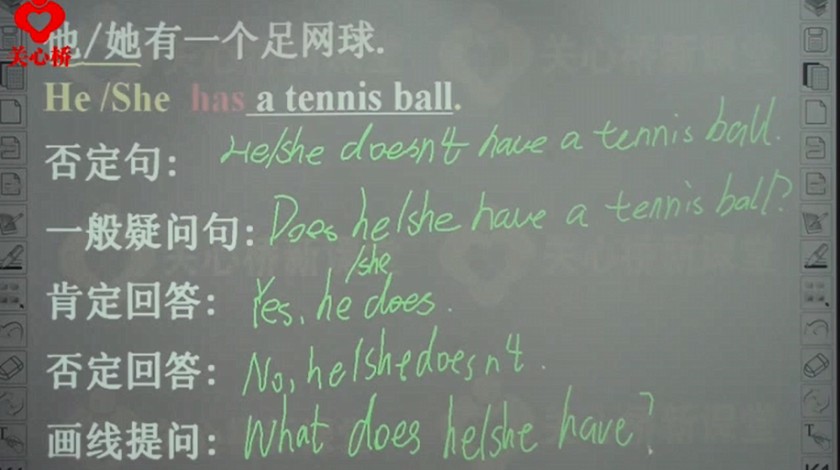 他/她有一个足网球.
关心桥
He /She has a tennis ball.
否定句: He/she doesn't have a tennis ball.
一般疑问句: Does he/she have a tennis ball?
/she
肯定回答: Yes, he does.
否定回答: No, he/she doesn't.
画线提问: What does he/she have?